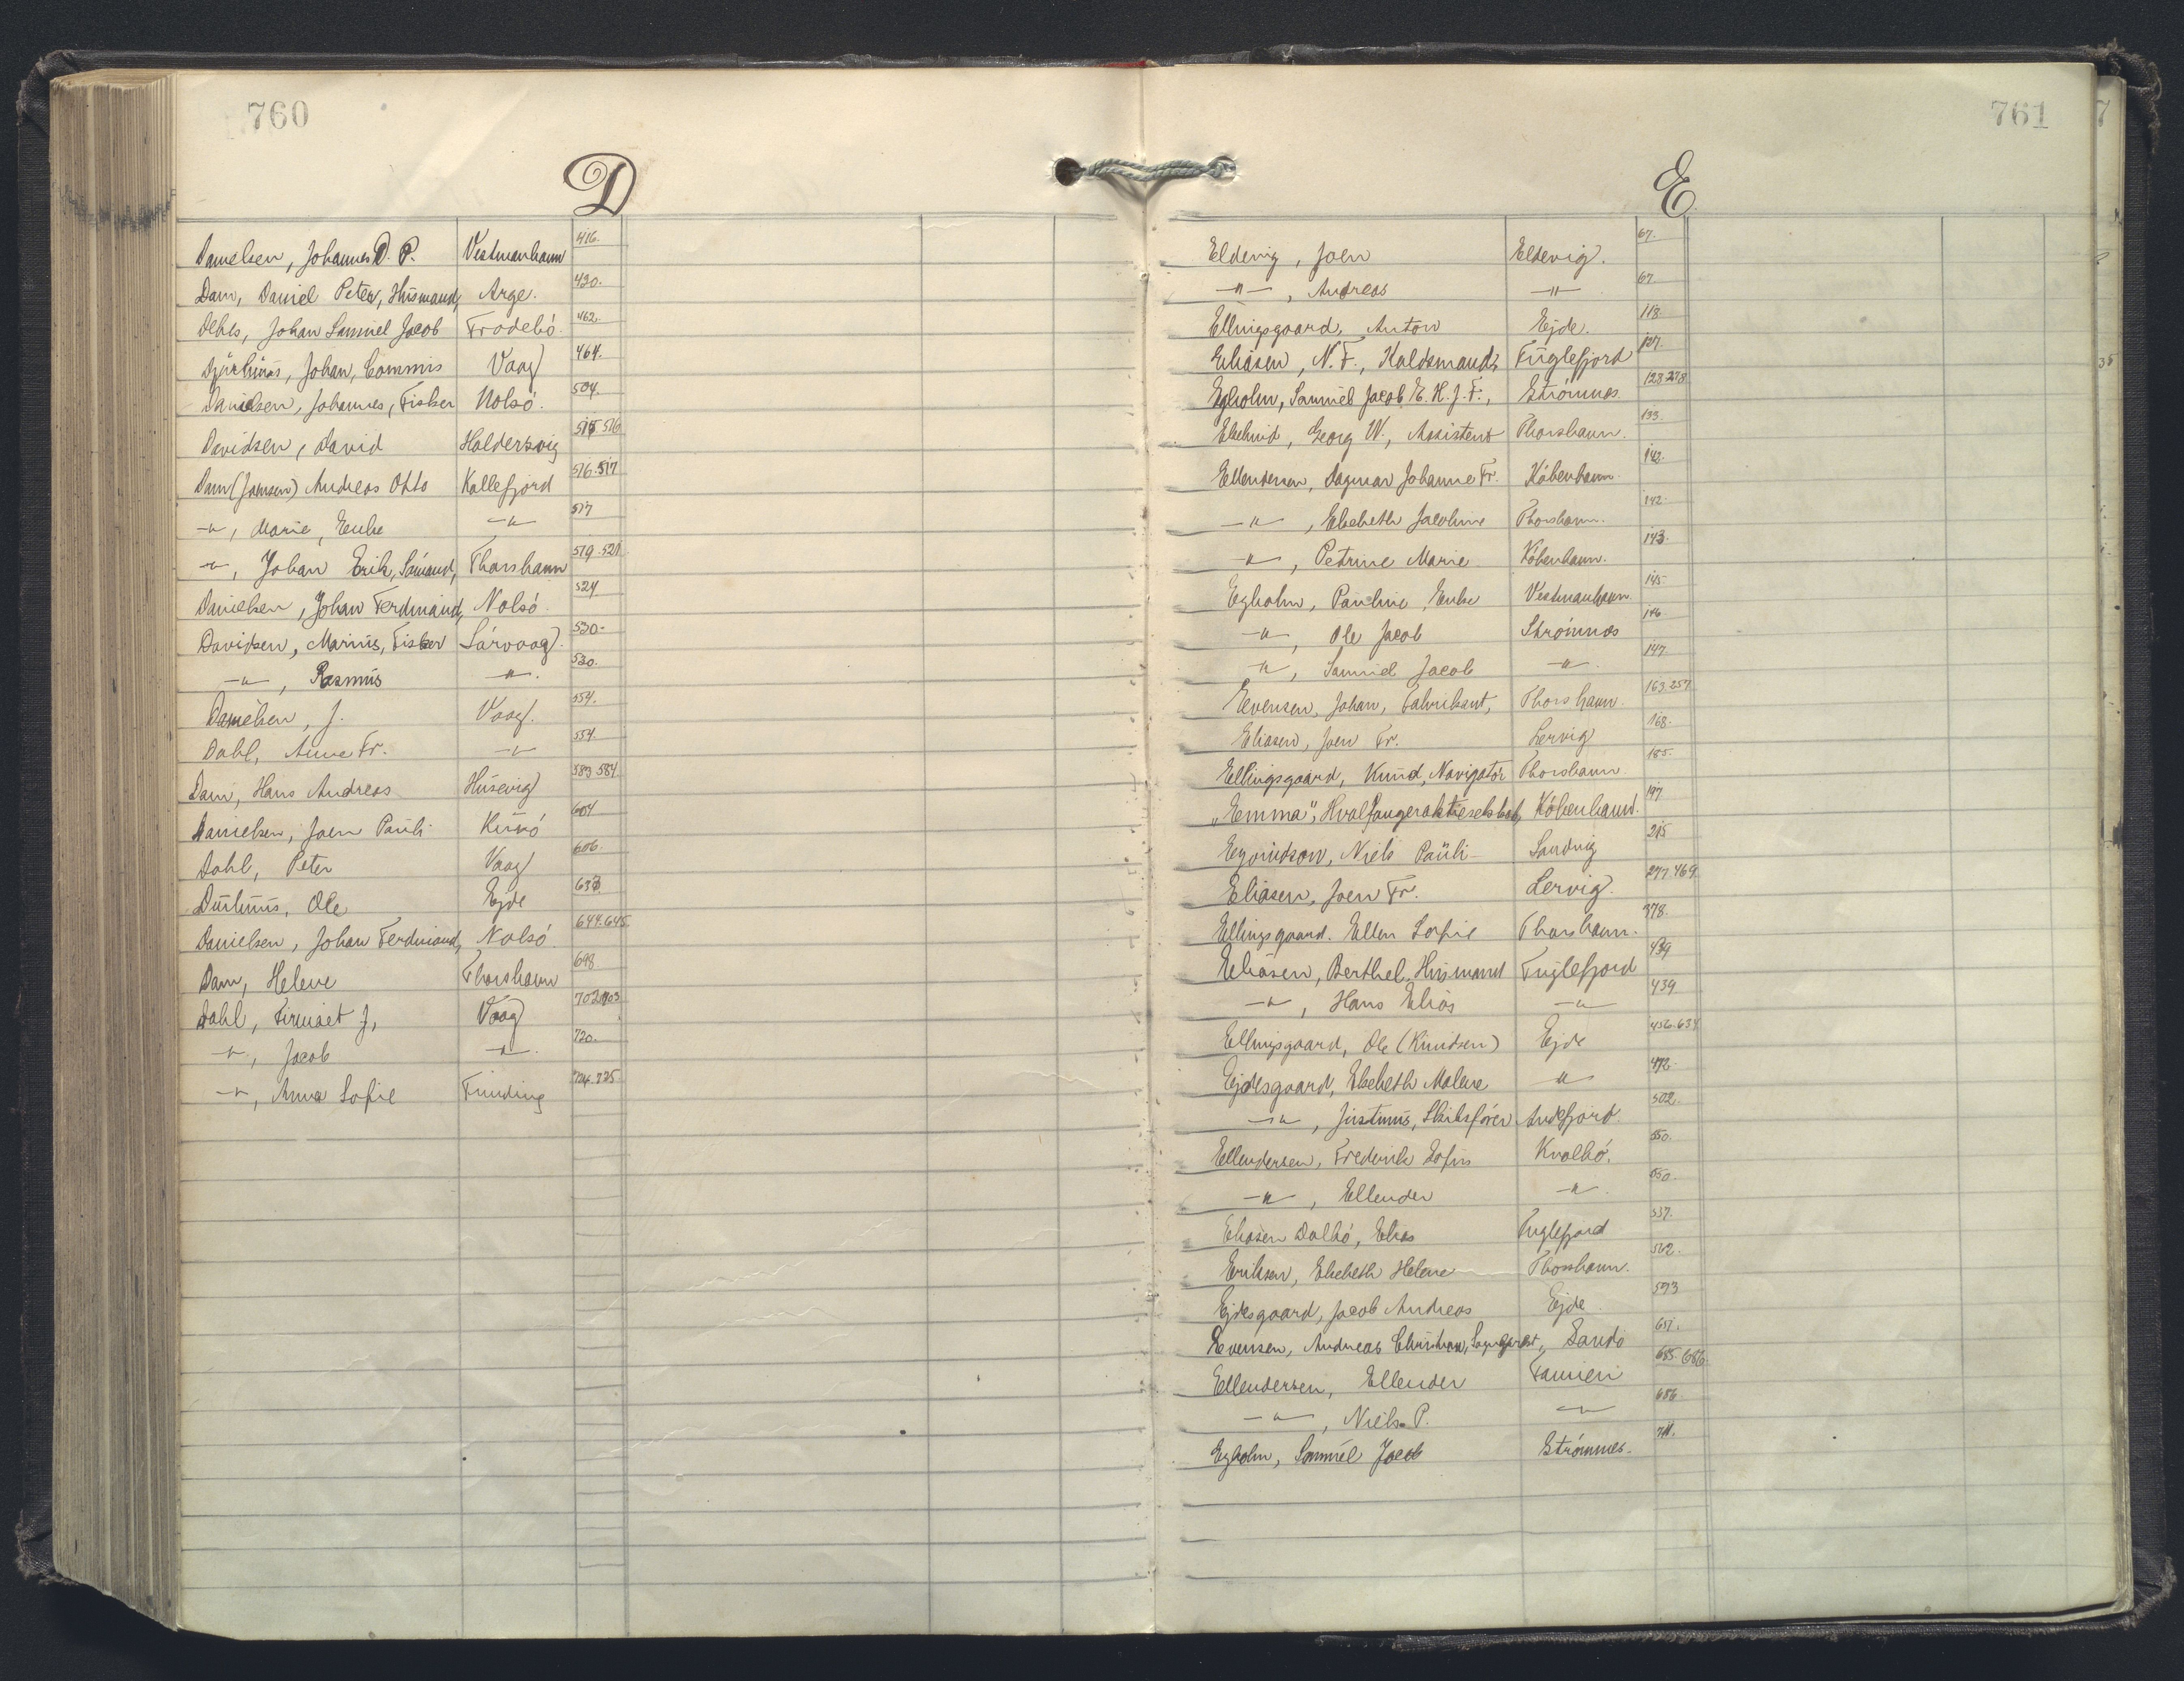 760
D
Danielsen, Johannes D. P. Vestmanhavn 416.
Dam, Daniel Peter, Husmand, Arge. 430.
Debes, Johan Samuel Jacob Frodebó. 462.
Djurhuus, Johan, Commis Vaag 464.
Danielsen, Johannes, Fisker Nolsó. 504.
Davidsen, David Haldersvig 515. 516
Dam (Joensen) Andreas Otto Kollefjord 516. 517
-"-, Marie, Enke -"- 517
-"-, Johan Erik, Sómand, Thorshavn 519. 521
Danielsen, Johan Ferdinand, Nolsó. 524
Davidsen, Marius, Fisker Sórvaag. 530.
-"-, Rasmus -"-. 530.
Danielsen, J. Vaag. 554.
Dahl, Anna Fr. -"- 554.
Dam, Hans Andreas Húsevig 583 584
Danielsen, Joen Pauli Kunó 604
Dahl, Peter Vaag 606.
Durhuus, Ole Ejde 633
Danielsen, Johan Ferdinand, Nolsó. 644. 645
Dam, Helene Thorshavn 698
Dahl, J, Vaag 702 703
-"-, Jacob -"-. 720.
-"-, Anna Sofie Funding 724. 725
761
E
Eldevig, Joen Eldevig. 67.
-"-, Andreas -"- 67.
Ellingsgaard, Anton Ejde. 118.
Eliasen, N. F., Kuldsmand, Fuglefjord 127.
Egholm, Samuel Jacob E. K. J. F., Strómnæs 128 278
Elschmid, Georg W., Assistent Thorshavn. 133.
Ellendersen, Dagmar Johanne Fr. Kóbenhavn. 142.
-"-, Elsebeth Jacobine Thorshavn. 142.
-"-, Petrine Marie Kóbenhavn. 143.
Egholm, Pauline, Enke Vestmanhavn. 145
-"-, Ole Jacob Strómnæs 146
-"-, Samuel Jacob -"-. 147
Evensen, Johan, Fabrikant, Thorshavn. 163. 257
Eliasen, Joen Fr. Lervig 168.
Ellingsgaard, Knud, Navigatór Thorshavn. 185.
„Emma", Hvalfangeraktieselskab, Kóbenhavn. 197
Niels Pauli Sandvig 215
Eliasen, Joen Fr. Lervig. 277. 469
Ellingsgaard. Ellen Sofie Thorshavn. 378.
Eliasen, Berthel, Husmand Fuglefjord 439
-"-, Hans Elias -"- 439
Ellingsgaard, Ole (Knudsen) Ejde 456. 634
Ejdesgaard, Elsebeth Malene -"- 472.
-"-, Justinus, Skibsfórer Andefjord. 502.
Ellendersen, Frederik Sofus Kvalbó. 550.
-"-, Ellender -"- 550.
Eliasen Dalbó, Elias Fuglefjord 557.
Eriksen, Elsebeth Helene Thorshavn. 562.
Ejdesgaard, Jacob Andreas Ejde 593
Evensen, Andreas Christian, Sognepræst, Sandó 651.
Ellendersen, Ellender Famien 685. 686.
-"-, Niels P. -"- 686
Egholm, Samuel Jacob Strómnes. 711.